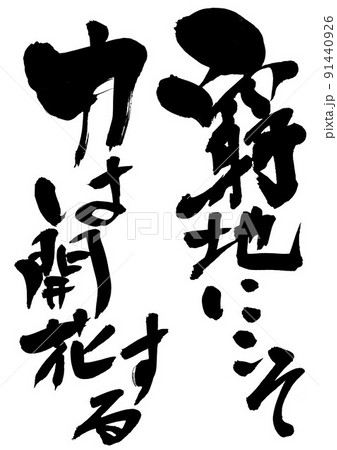 窮地にこそ
力は開花
する
PIXTA
pixta.jp - 91440926